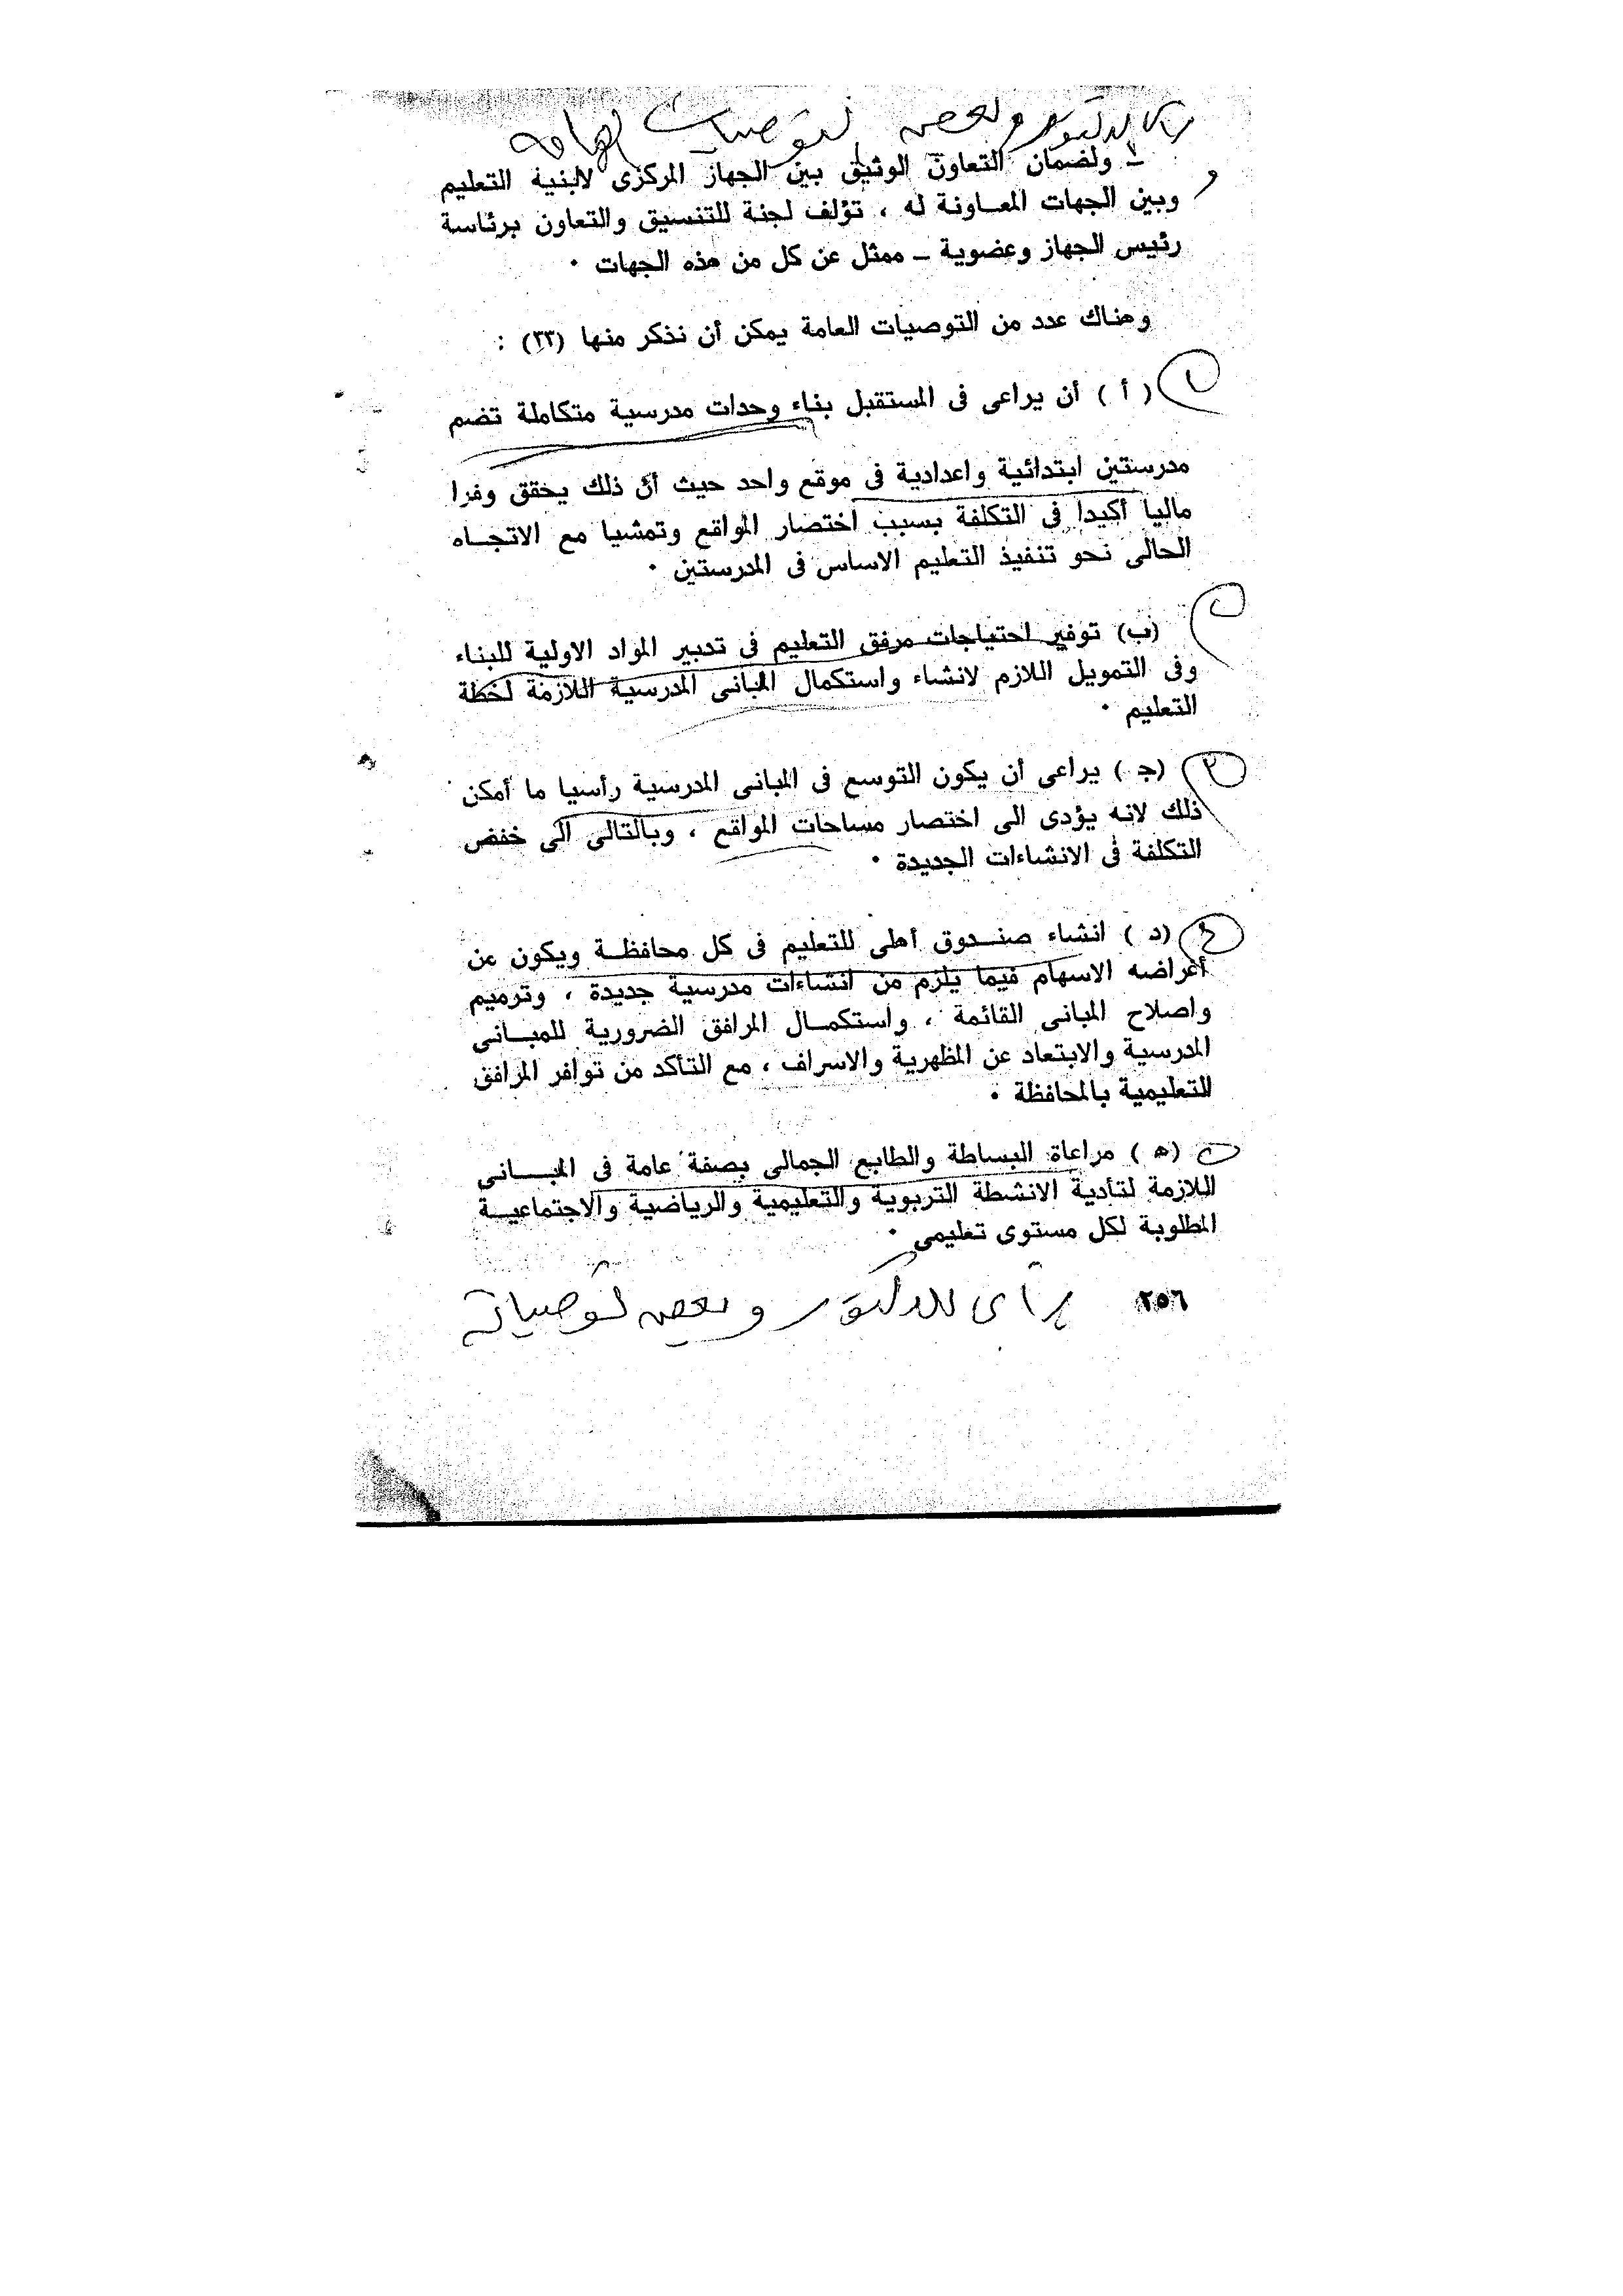 رأى الدكتور وبعض توصيات هامة
ـ ولضمان التعاون الوثيق بين الجهاز المركزى لابنية التعليم
وبين الجهات المعــاونة له ، تؤلف لجنة للتنسيق والتعاون برئاسة
رئيس الجهاز وعضوية ـ ممثل عن كل من هذه الجهات ٠
وهناك عدد من التوصيات العامة يمكن أن نذكر منها (٣٣) :
١ ( أ ) أن يراعى فى المستقبل بناء وحدات مدرسية متكاملة تضم
مدرستين ابتدائية واعدادية فى موقع واحد حيث أن ذلك يحقق وفرا
ماليا أكيدا فى التكلفة بسبب اختصار المواقع وتمشيا مع الاتجــاه
الحالى نحو تنفيذ التعليم الاساس فى المدرستين ٠
(ب) توفير احتياجات مرفق التعليم فى تدبير المواد الاولية للبناء
وفى التمويل اللازم لانشاء واستكمال المبانى المدرسية اللازمة لخطة
التعليم ٠
٣ (جـ ) يراعى أن يكون التوسع فى المبانى المدرسية رأسيا ما أمكن
ذلك لانه يؤدى الى اختصار مساحات المواقع ، وبالتالى الى خفض
التكلفة فى الانشاءات الجديدة ٠
٤ (د ) انشاء صنــدوق أهلى للتعليم فى كل محافظــة ويكون من
أغراضه الاسهام فيما يلزم من انشاءات مدرسية جديدة ، وترميم
واصلاح المبانى القائمة ، واستكمــال المرافق الضرورية للمبــانى
المدرسية والابتعاد عن المظهرية والاسراف ، مع التأكد من توافر المرافق
التعليمية بالمحافظة ٠
(ه ) مراعاة البساطة والطابع الجمالى بصفة عامة فى المبــــانى
اللازمة لتأدية الانشطة التربوية والتعليمية والرياضية والاجتماعيــة
المطلوبة لكل مستوى تعليمى ٠
رأى الدكتور وبعض توصياته
٢٥٦